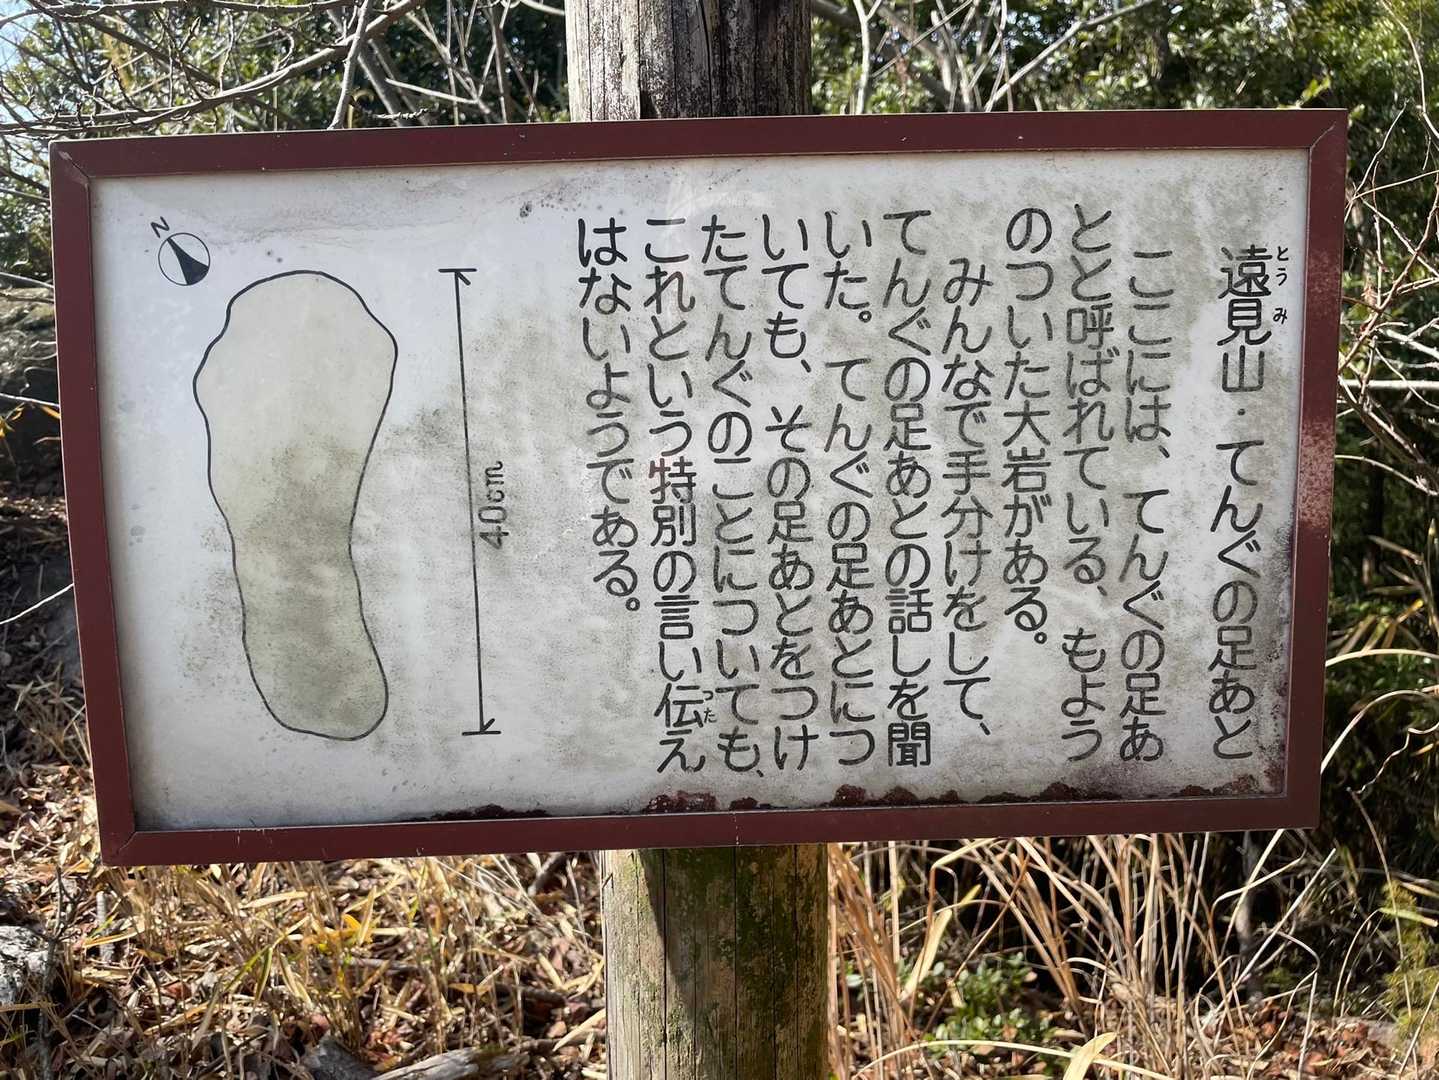 遠見山・てんぐの足あと
とうみ
ここには、てんぐの足あ
とと呼ばれている、もよう
のついた大岩がある。
みんなで手分けをして、
てんぐの足あとの話しを聞
いた。てんぐの足あとにつ
いても、その足あとをつけ
たてんぐのことについても、
これという特別の言い伝え
つた
はないようである。
40cm
N